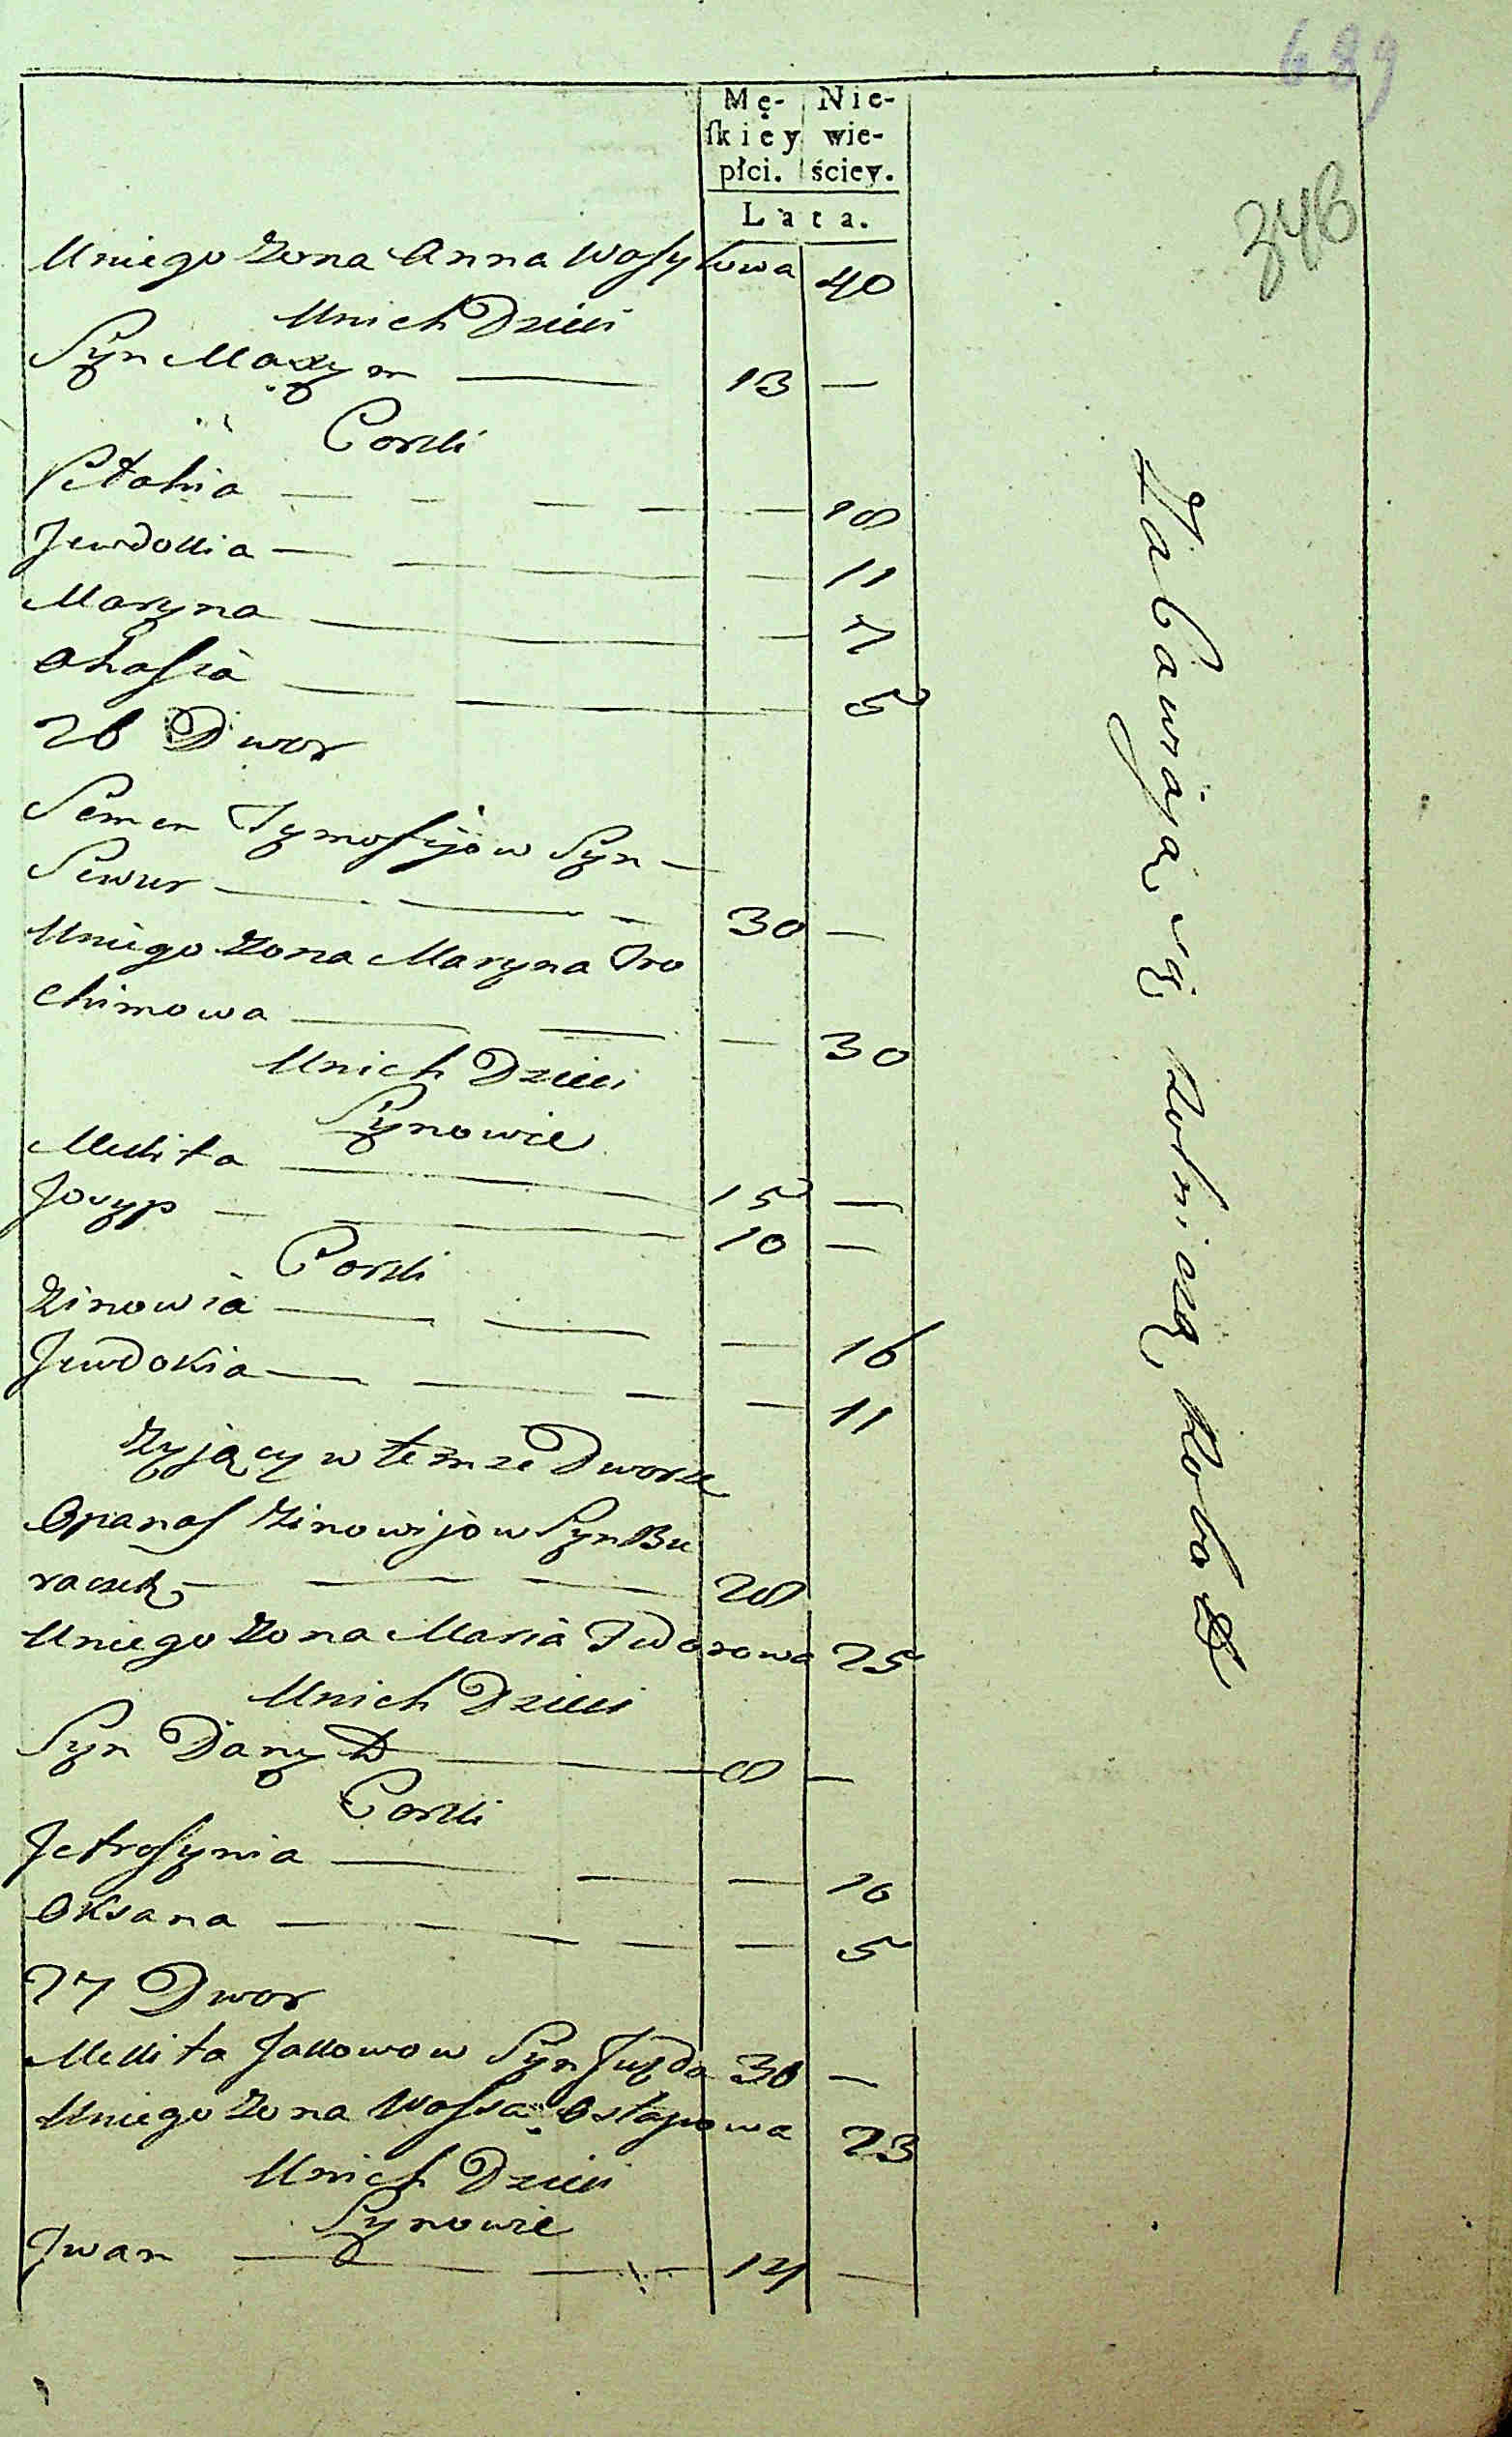 689
346
Mę- Nie-
ſkiey wie-
płci. ściey.
Lata.
Uniego Zona Anna Wasylowa 40
Unich Dzieci
Syn Maxym — 13 —
Corki
Petahia — — — — — 18
Jewdokia — — — — 11
Maryna — — — 7
Ohasia — — — 5
26 Dwor
Semen Tymofijow Syn —
Sewur — — — 30 —
Uniego Zona Maryna Tro
chimowa — — — 30
Unich Dzieci
Synowie
Mekita — — 15 —
Josyp — — 10 —
Corki
Zinowia — — — — 16
Jewdokia — — — — 11
Zyjący w temze Dworze
Opanas Zinowijow Syn Bu
raczek — — — 28
Uniego Zona Maria Fedorowa 25
Unich Dzieci
Syn Danyło — 8 —
Corki
Jefrosynia — — — 10
Oksana — — — — 5
27 Dwor
Mekita Jakowow Syn 30 —
Uniego Zona Wassa Ostapowa 23
Unich Dzieci
Synowie
Iwan — — — 14 —
Zabawiają się Rolniczą Robotą